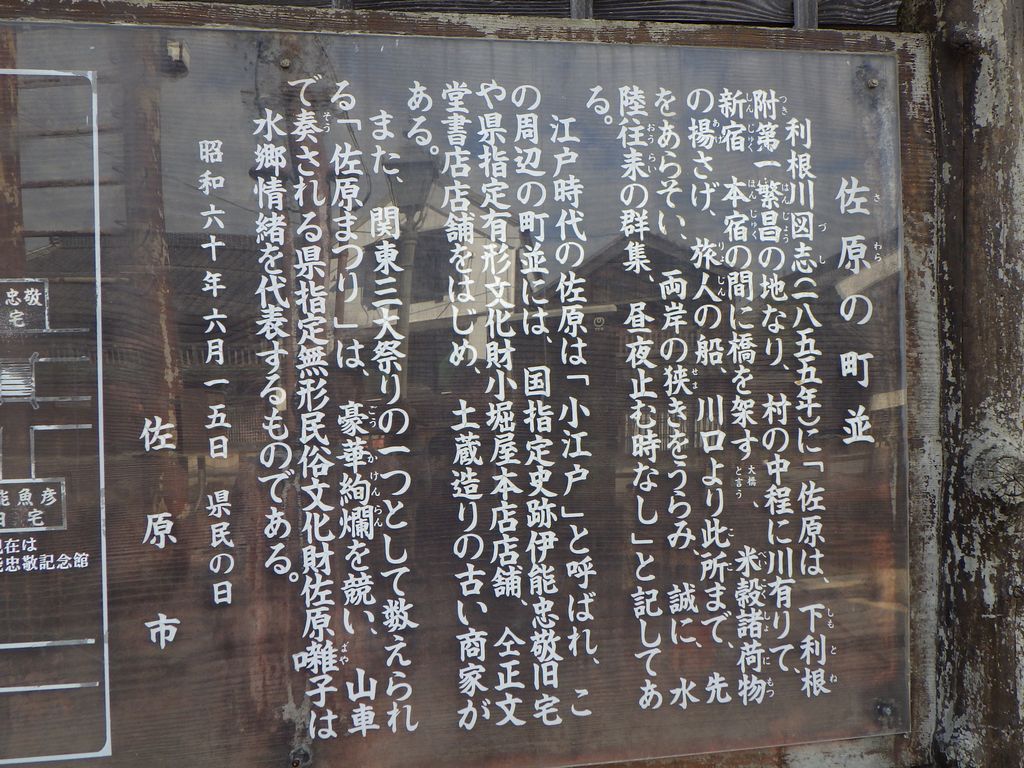 佐原の町並
利根川図志(一八五五年)に「佐原は、下利根
附第一繁昌の地なり、村の中程に川有りて、
新宿 本宿の間に橋を架す 大橋と言う、米穀諸荷物
の揚さげ、旅人の船、川口より此所まで、先
をあらそい、両岸の狭きをうらみ、誠に、水
陸往来の群集、昼夜止む時なし」と記してあ
る。
江戸時代の佐原は「小江戸」と呼ばれ、こ
の周辺の町並には、国指定史跡伊能忠敬旧宅
や県指定有形文化財小堀屋本店店舗、仝正文
堂書店店舗をはじめ、土蔵造りの古い商家が
ある。
また、関東三大祭りの一つとして数えられ
る「佐原まつり」は、豪華絢爛を競い、山車
で奏される県指定無形民俗文化財佐原囃子は
水郷情緒を代表するものである。
昭和六十年六月一五日 県民の日
佐原市
忠敬
宅
能魚彦
旧宅
現在は
能忠敬記念館